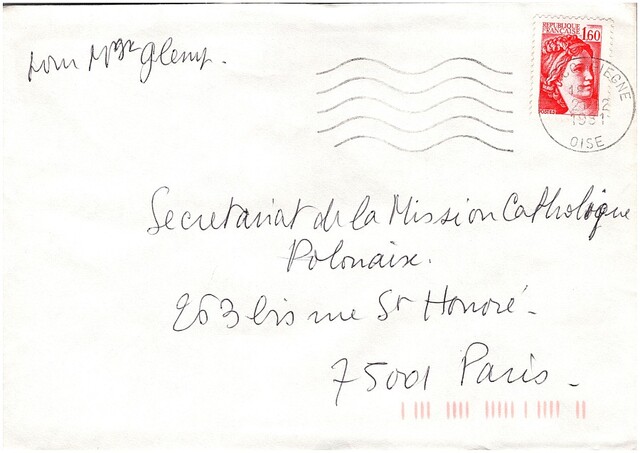 REPUBLIQUE
FRANCAISE
1,60
pour Mgr Glemp.
1981
OISE
Secretariat de la Mission Catholique
Polonaise.
263 bis rue St Honoré -
75001 Paris -